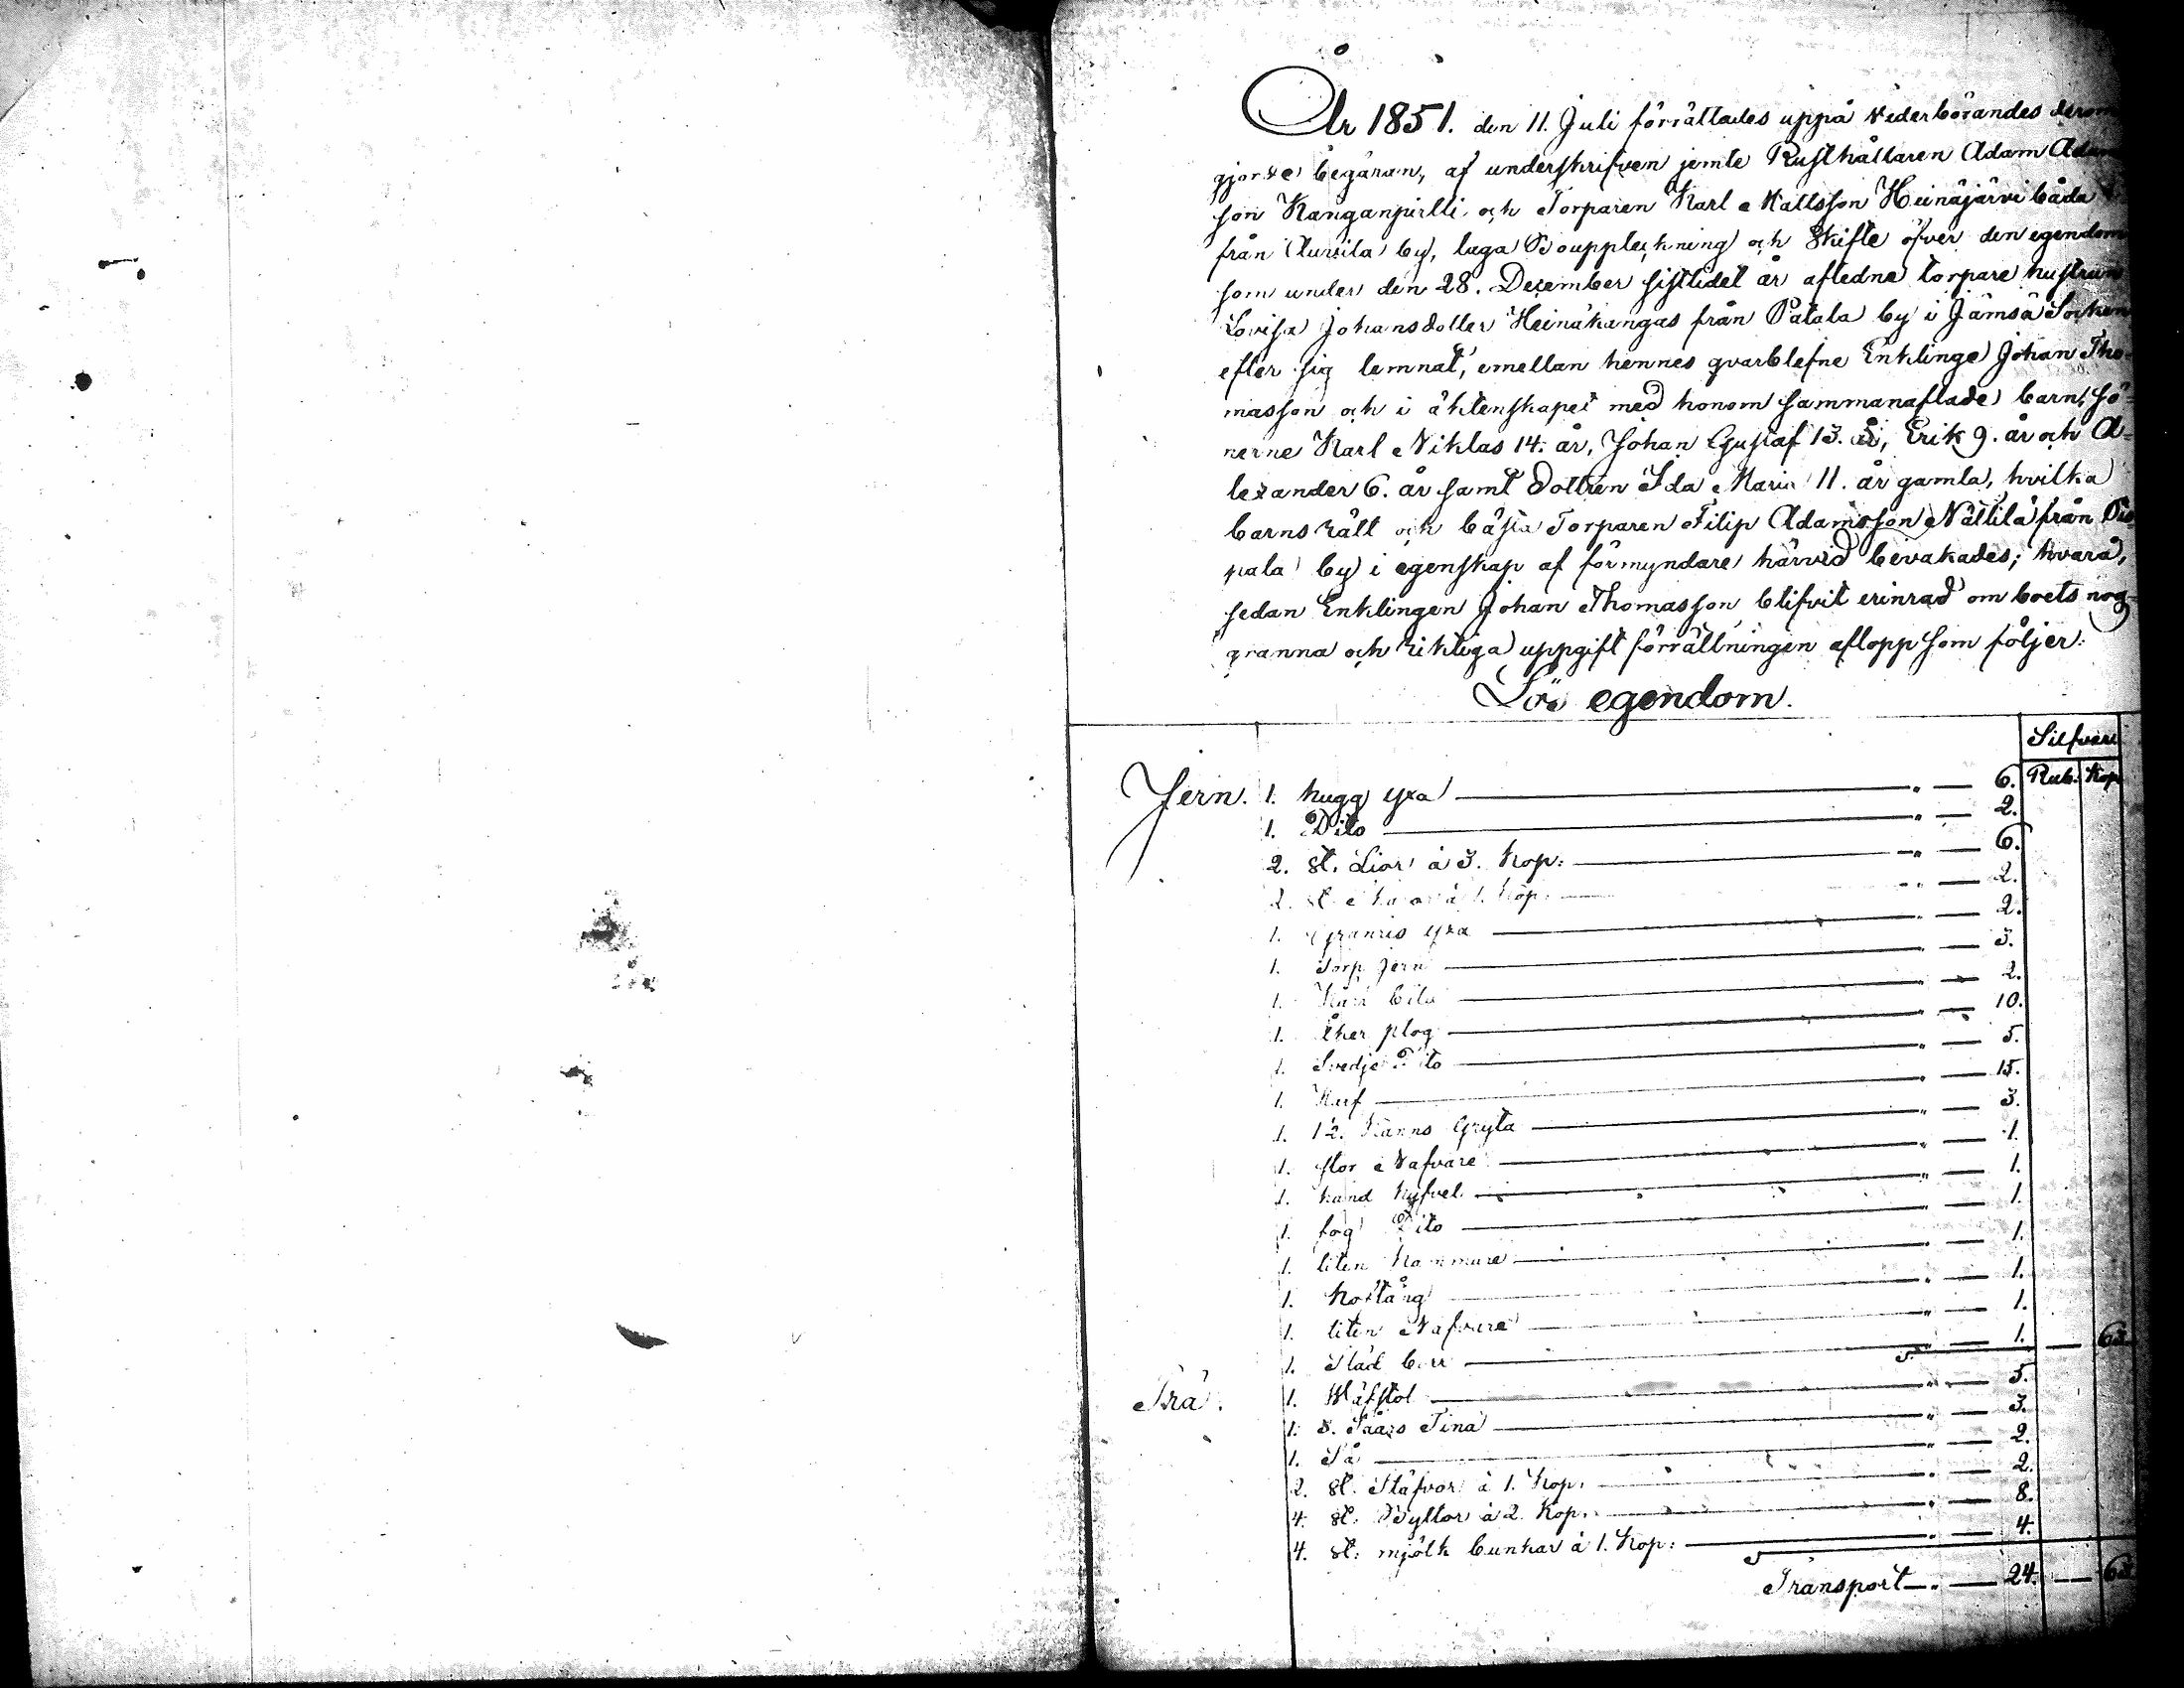 År 1851. den 11. Juli förrättades uppå vederbörandes derom
gjorde begäran, af underskrifven jemte Rusthållaren Adam Adam
son Kanganpirtti och Torparen Karl Mattsson Heinäjärvi båda
från by, laga Bouppteckning och Skifte öfver den egendom
som under den 28. December sistledet år afledne torpare hustrun
Lovisa Johansdotter Heinäkangas från Patala by i Jämsä Socken
efter sig lemnat, emellan hennes qvarblefne Enklinge Johan Tho-
masson och i äktenskapet med honom sammanaflade barn, sö-
nerne Karl Niklas 14. år, Johan Gustaf 13. år, Erik 9. år och A-
lexander 6. år samt dottren Ida Maria 11. år gamla, hvilka
barns rätt och bästa Torparen Filip Adamsson Nättilä från
pala by i egenskap af förmyndare härvid bevakades; hvarå,
sedan Enklingen Johan Thomasson, blifvit erinrad om boets nog-
granna och riktiga uppgift förrättningen aflopp som följer:
Lös egendom.
Silfver
Rub. Kop
Jern. 1. hugg yxa — " — 6.
1. Dito — " — 2.
2. st. Liar à 3. Kop: — " — 6.
2. st. à 1. Kop: — " — 2.
1. Granris yxa — " — 2.
1. Torp Jern — " — 3.
1. — " — 2.
1. Åker plog — " — 10.
1. Svedje Dito — " — 5.
1. Harf — " — 15.
1. 12. Kanns Gryta — " — 3.
1. stor Nafvare — " — 1.
1. hand hyfvel — " — 1.
1. fog Dito — " — 1.
1. liten Hammare — " — 1.
1. hoftång — " — 1.
1. liten Nafvare — " — 1.
1. Städ — " — 1. — 63
Trä. 1. Wäfstol — " — 5.
1. 3. Sååus Tina — " — 3.
1. Så — " — 2.
2. st. Stäfvor à 1. Kop: — " — 2.
4. st. Byttor à 2. Kop: — " — 8.
4. st: mjölk bunkar à 1. Kop: — " — 4.
Transport — " — 24. — 63